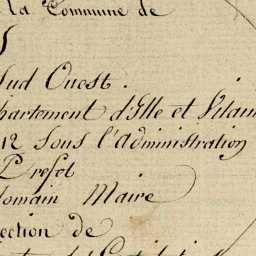 la Commune de
Sud Ouest.
partement d'Ille et Vilaine
12 Sous l'administration
Prefet
Romain Maire
ection de